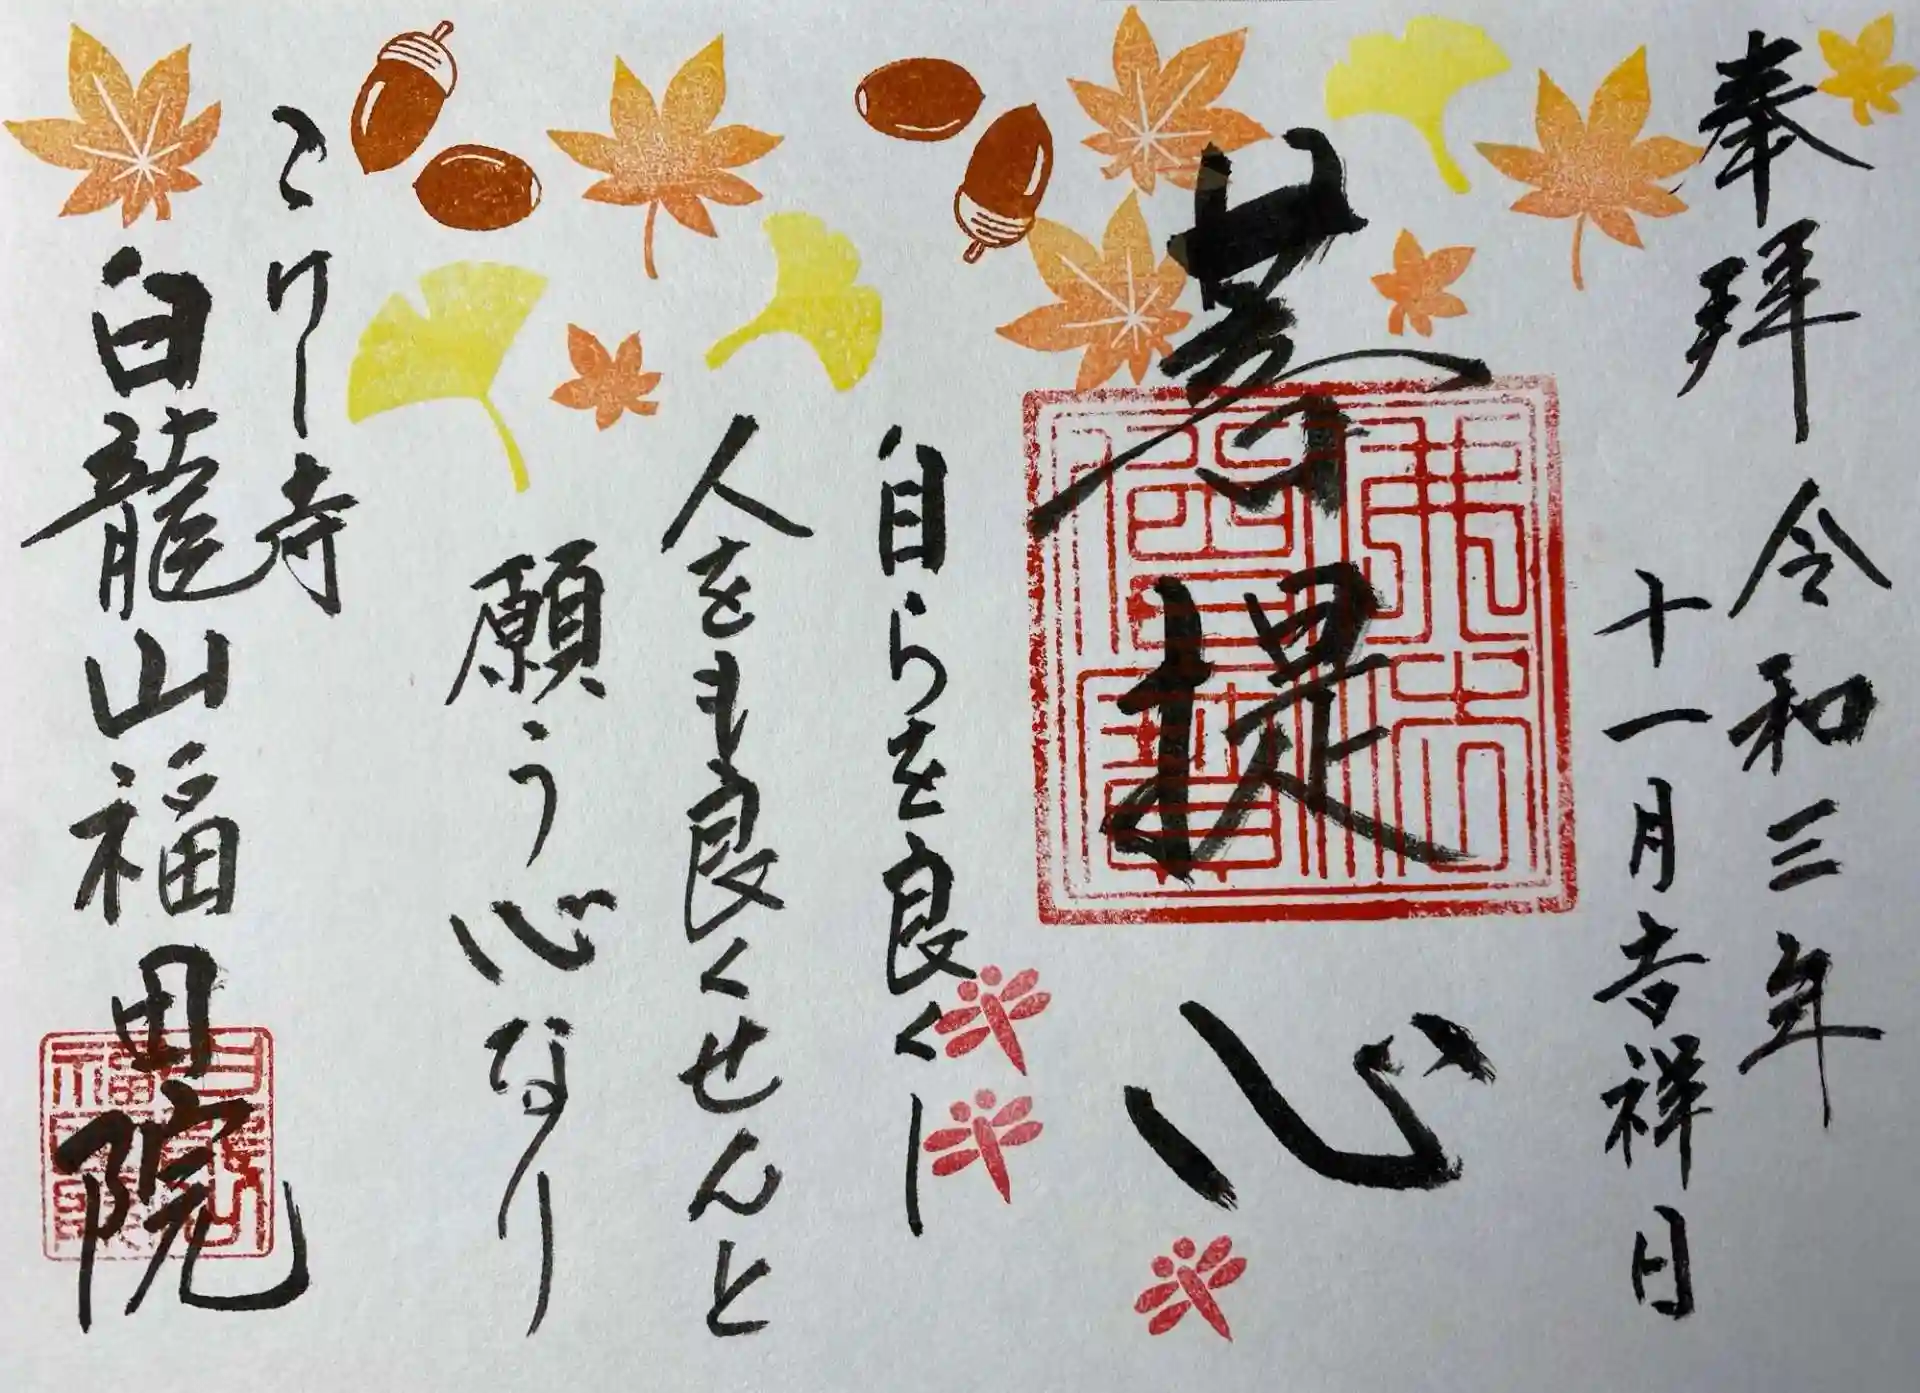 奉拝 令和三年
十一月吉祥日
菩提心
佛法僧寶
自らを良くし
人をも良くせんと
願う心なり
こけし寺
白龍山福田院